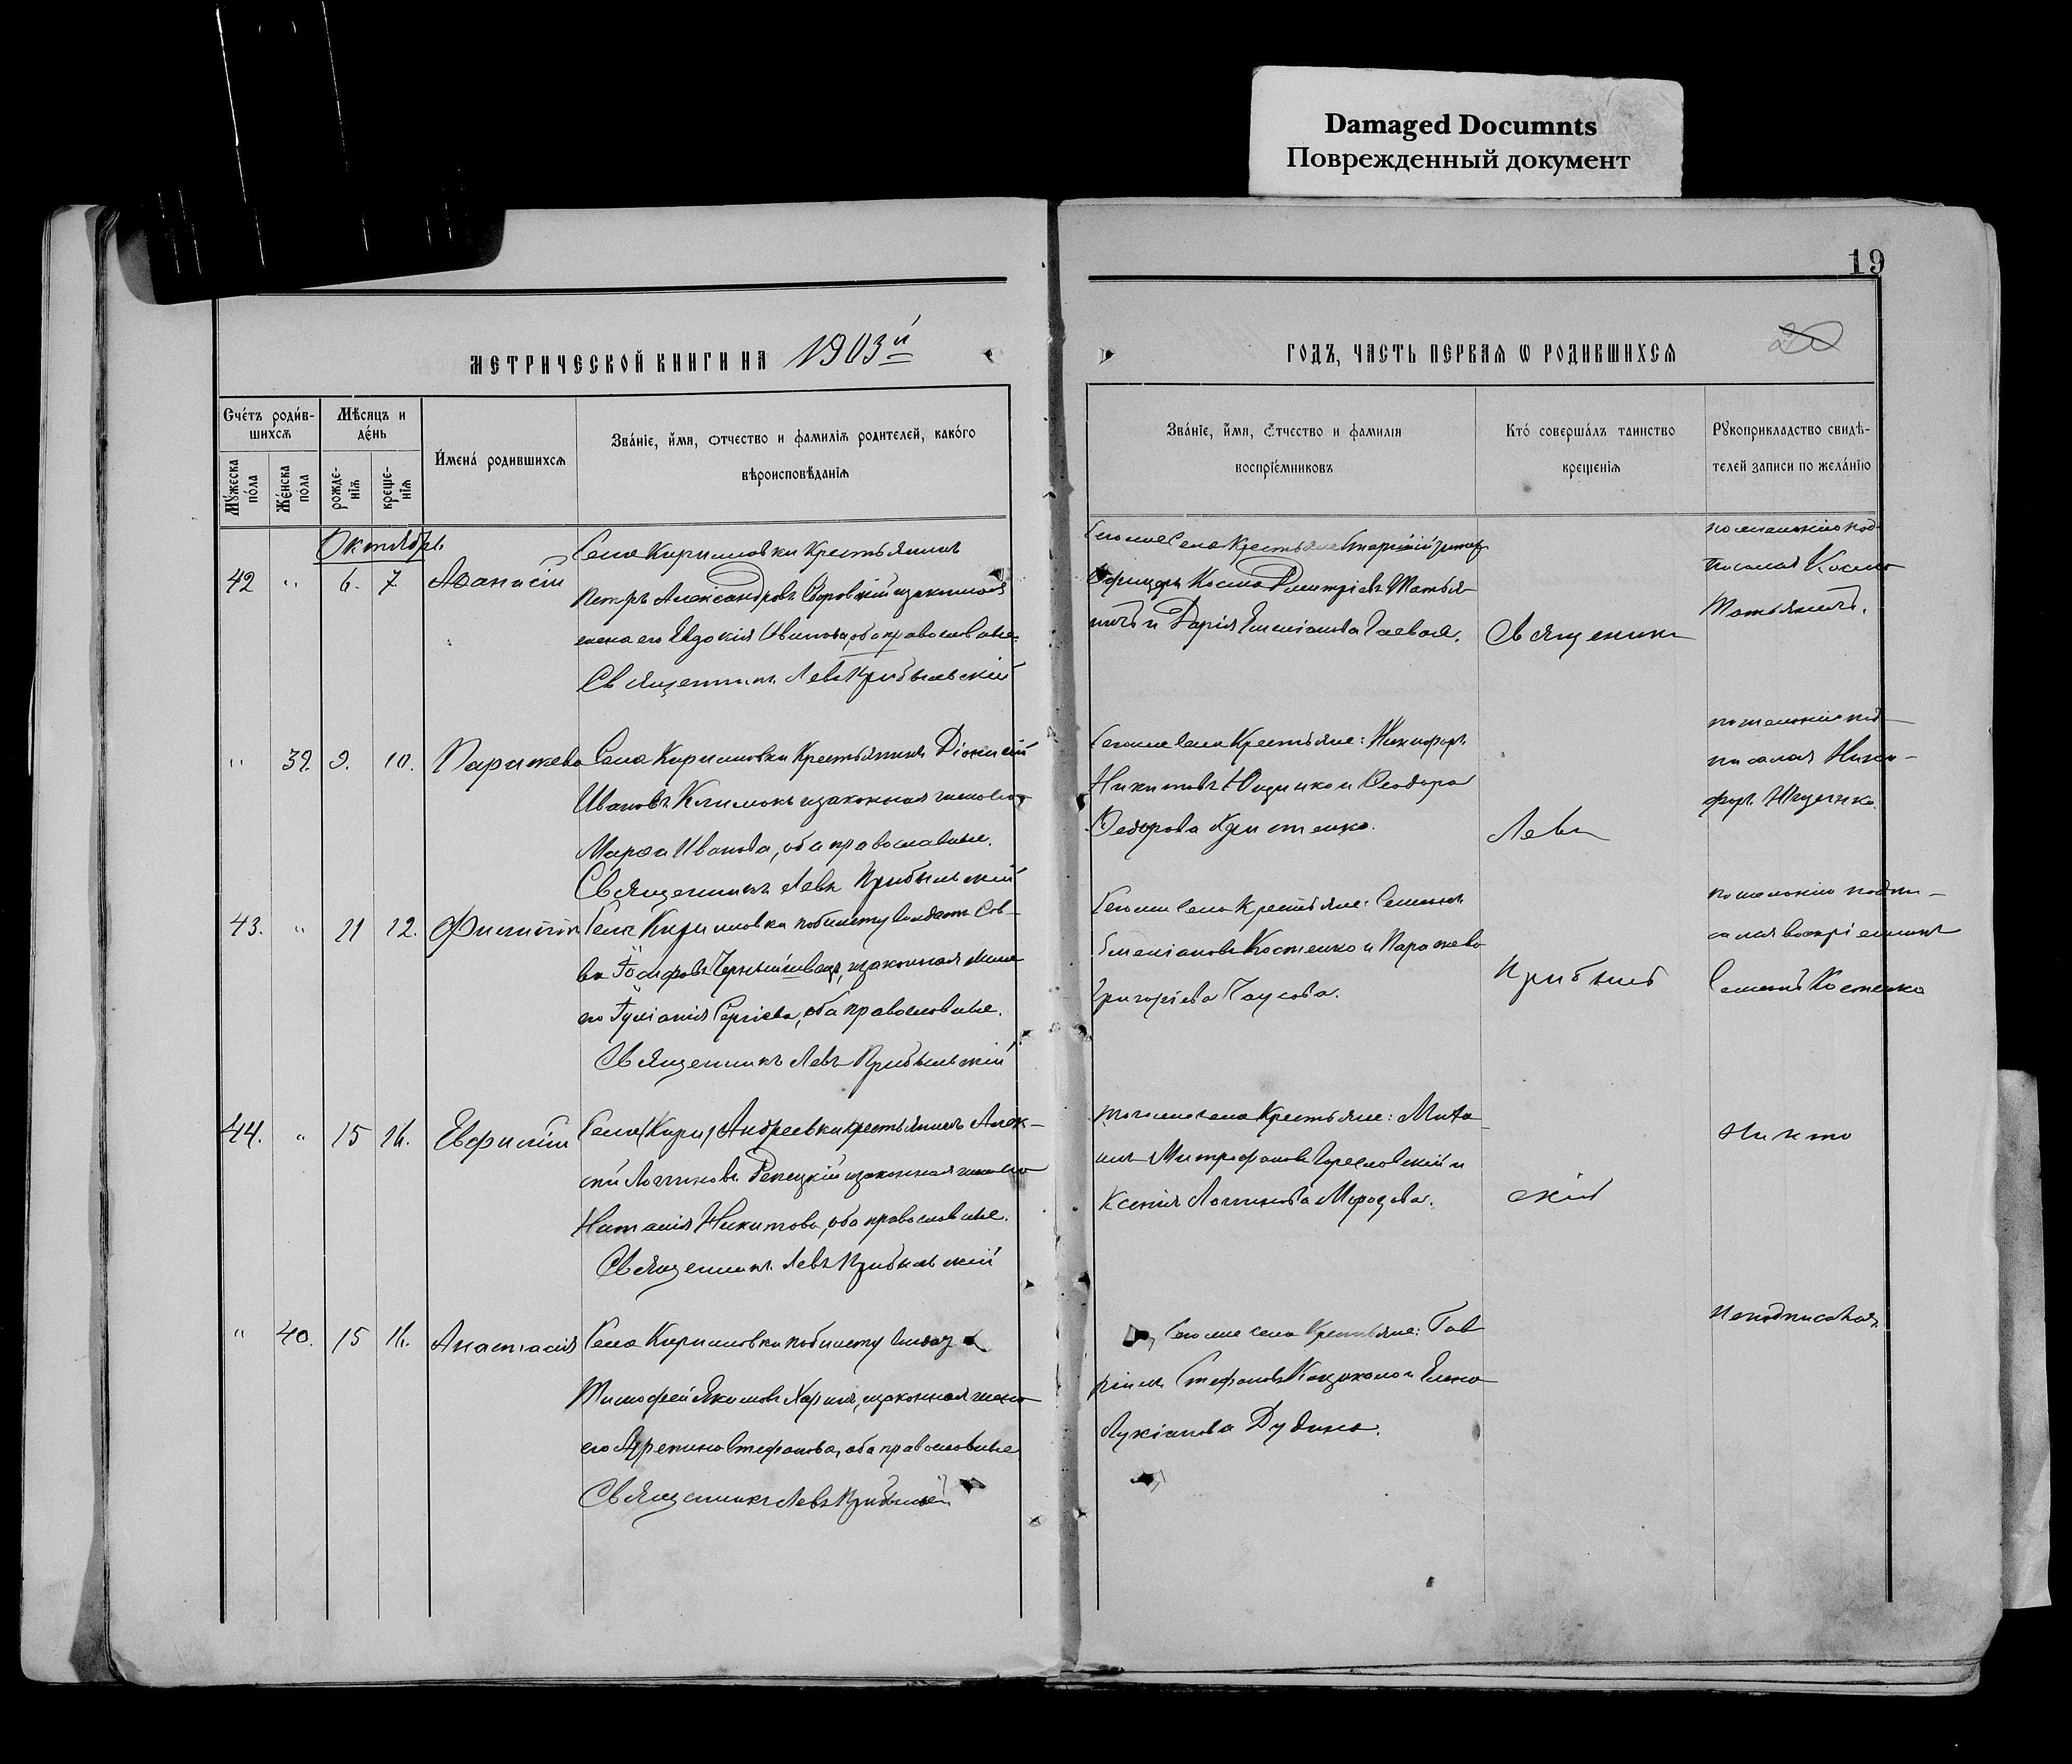 Damaged Documnts
Поврежденный документ
19
МЕТРИЧЕСКОЙ КНИГИ НА 1903й
ГОДЪ, ЧАСТЬ ПЕРВАЯ Ѡ РОДИВШИХСЯ
20
Счетъ родив-
шихся
Мѣсяцъ и
день
Имена родившихся
Званіе, имя, отчество и фамилія родителей, какого
вѣроисповѣданія
Мужеска
пола
Женска
пола
рожде-
нія
креще-
нія
Званіе, имя, отчество и фамилія
воспріемниковъ
Кто совершалъ таинство
крещенія
Рукоприкладство свидѣ-
телей записи по желанію
Октябрь
42 " 6. 7 Аѳанасій
Села Кирилловки Крестьянинъ
Петръ Александровъ законная
жена его Евдокія Иванова, оба православные.
Священникъ Левъ Прибыльскій
Сего же Села Крестьяне Старшій унтер
Офицеръ Косма Димитріевъ Матья
и Дарія Емеліанова Гаевая.
Священникъ
по желанію под-
писался Косма
" 39. 9. 10. Параскева
Села Кирилловки Крестьянинъ Діонисій
Ивановъ Климокъ и законная жена его
Марѳа Иванова, оба православные.
Священникъ Левъ Прибыльскій
Сего же Села Крестьяне: Никифоръ
Никитовъ и Ѳеодора
Ѳедорова
Левъ
по желанію под-
писался Ники-
форъ
43. " 11 12. Филиппъ
Села Кирилловки по билету Солдатъ Сав-
ва Іосифовъ и законная жена
его Іуліанія Сергіева, оба православные.
Священникъ Левъ Прибыльскій
Сего же Села Крестьяне: Семенъ
Емеліановъ Костенко и Параскева
Григоріева Чаусова.
Прибыль
по желанію подпи-
сался воспріемникъ
Семенъ Костенко
44. " 15 16. Евфимій
Села (Кири) Андреевки крестьянинъ Алек-
сій Логгиновъ Репецкій и законная жена его
Наталія Никитова, оба православные.
Священникъ Левъ Прибыльскій
того же села Крестьяне: Миха
илъ Митрофановъ и
Ксенія Логгинова Морозова.
скій
Никто
" 40. 15 16. Анастасія
Села Кирилловки по билету
Тимофей Якимовъ и законная жена
его Агрепина Стефанова, оба православные
Священникъ Левъ Прибыльскій
Сего же села Крестьяне: Гав
ріилъ Стефановъ и Елена
Лукіанова Дудина.
неподписался